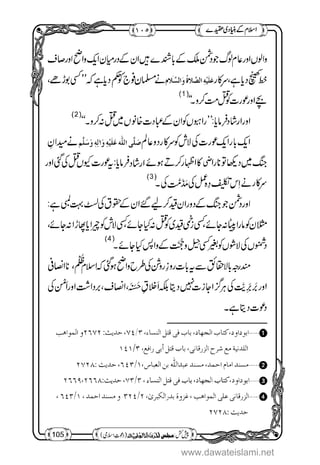 اسلام کے بنیادی عقیدے
١٠٥
والوں اور عام لوگ جو دشمن ملک کے باشندے ہیں ان کے درمیان ایک واضح اور صاف
خط کھینچ دیا ہے، سرکار عَلَیْہِ الصَّلَاۃُ وَالسَّلَام نے مسلمان فوج کو حکم دیا ہے کہ ’’کسی بوڑھے،
بچے اور عورت کو قتل مت کرو۔‘‘(1)
اور ارشاد فرمایا: ’’راہبوں کو ان کے عبادت خانوں میں قتل نہ کرو۔‘‘(2)
ایک بار ایک عورت کی لاش کو سرکارِ دو عالم صَلَّی اللہُ عَلَیْہِ وَاٰلِہٖ وَسَلَّم نے میدانِ
جنگ میں دیکھا تو ناراضی کا اظہار کرتے ہوئے ارشاد فرمایا: یہ عورت کیوں قتل کی گئی اور
سرکار نے اِس تکلیف دہ عمل کی مَذمَّت کی۔(3)
اور دشمن جو جنگ کے دوران قیدی کر لیے گئے ان کے حقوق کی لسٹ بہت لمبی ہے:
مثلاً ان کو مارا پیٹا نہ جائے، کسی زخمی قیدی کو قتل نہ کیا جائے، کسی لاش کو چیرا پھاڑا نہ جائے،
دشمنوں کی لاشوں کو بغیر کسی لین دین کے واپس کیا جائے۔(4)
مندرجہ بالا حقائق سے یہ بات روزِ روشن کی طرح واضح ہوگئی کہ اسلام ظُلْم، نا انصافی
اور بَربَرِیَّت کی ہرگز اجازت نہیں دیتا بلکہ اخلاقِ حَسَنَہ، انصاف، برداشت، اور امن کی
دعوت دیتا ہے۔
1 ......ابوداود، کتاب الجهاد، باب فی قتل النساء، ٧٤/٣، حدیث: ٢٦٧٢ و المواهب
اللدنیة مع شرح الزرقانی، باب قتل ابی رافع، ١٤١/٣
2 ......مسند امام احمد، مسند عبدالله بن العباس، ٦٤٣/١، حدیث: ٢٧٢٨
3 ......ابوداود، کتاب الجهاد، باب فی قتل النساء، ٧٣/٣، حدیث: ٢٦٦٨، ٢٦٦٩
4 ......الزرقانی علی المواهب، غزوة بدر الکبری، ٣٢٤/٢ و مسند احمد، ٦٤٣/١،
حدیث: ٢٧٢٨
105
www.dawateislami.net